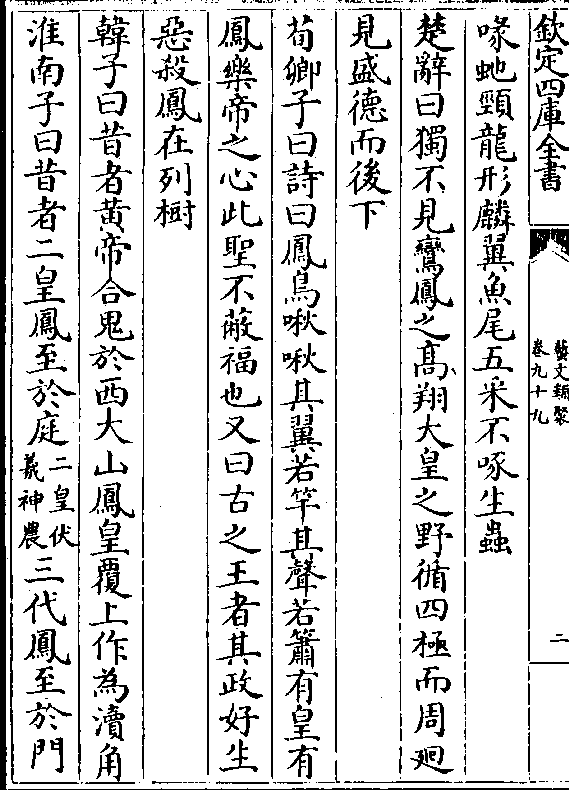 欽定四庫全書
藝文類聚
卷九十九
二
喙虵頸龍形麟翼魚尾五采不啄生蟲
楚辭曰獨不見鸞鳳之髙翔大皇之野循四極而周廻
見盛德而後下
荀卿子曰詩曰鳳鳥啾啾其翼若竿其聲若簫有皇有
鳳樂帝之心此聖不蔽福也又曰古之王者其政好生
惡殺鳳在列樹
韓子曰昔者黄帝合鬼於西大山鳳皇覆上作為瀆角
淮南子曰昔者二皇鳳至於庭二皇伏羲神農三代鳳至於門